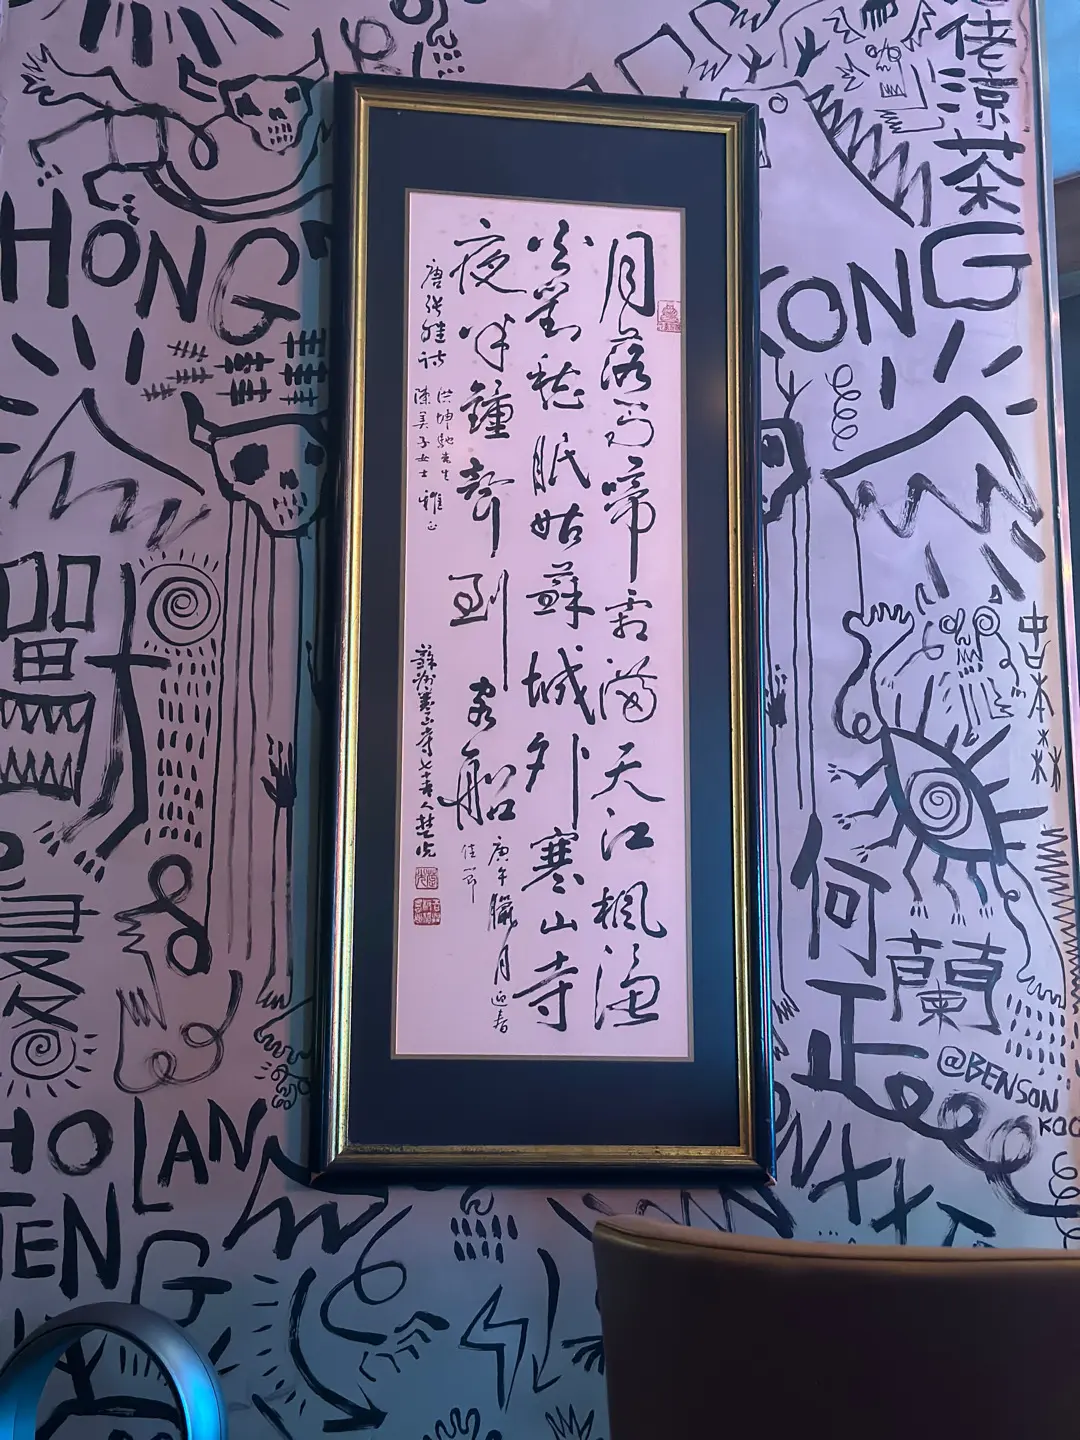 月落烏啼霜滿天江楓漁
火對愁眠姑蘇城外寒山寺
夜半鐘聲到客船
庚午臘月迎春
佳節
唐張繼詩
洪坤馳先生
陳美子女士
雅正
蘇州寒山寺七十老人楚光
佬涼茶
HONG
KONG
中
本
何
蘭
正
@BENSON
KOO
HOLAN
TENG